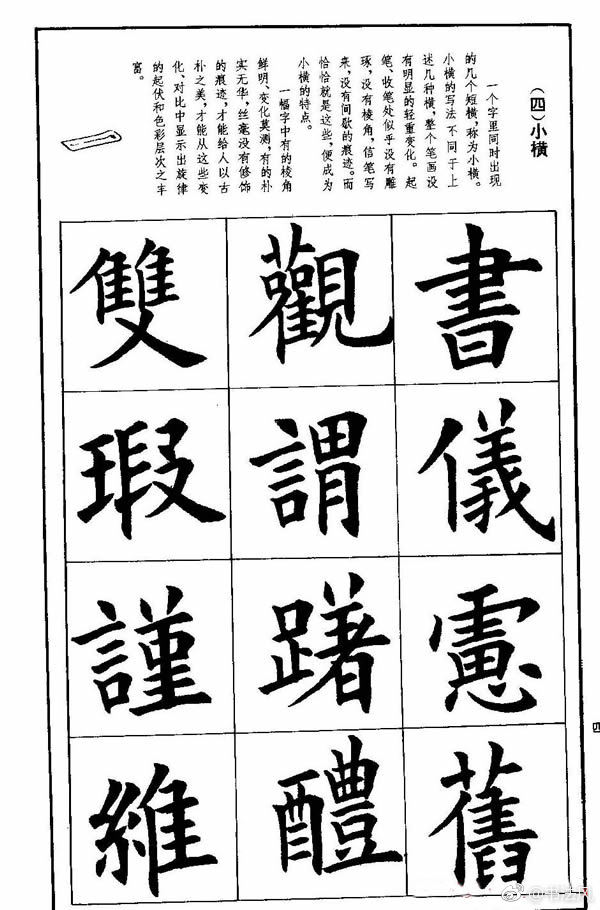 (四)小横
一个字里同时出现
的几个短横,称为小横。
小横的写法 不同于上
述几种横,整个笔画没
有明显的轻重变化。起
笔、收笔处似乎没有雕
琢,没有棱角,信笔写
来,没有间歇的痕迹。而
恰恰就是这些,便成为
小横的特点。
一幅字中有的棱角
鲜明、变化莫测,有的朴
实无华,丝毫没有修饰
的痕迹,才能给人以古
朴之美,才能从这些变
化、对比中显示出旋律
的起伏和色彩层次之丰
富。
書儀慮舊
觀謂躇醴
雙瑕謹維
四
@书法风